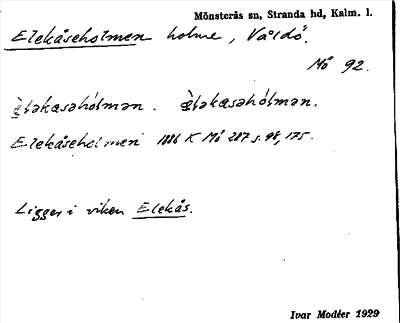 Mönsterås sn, Stranda hd, Kalm. l.
Elekåseholmen holme, Våldö.
Mö 92.
è̀ləkasəhólmən. è̀ləkasəhólmən.
Elekåseholmen 1886 K Mö 287 s. 98, 175.
Ligger i viken Elekås.
Ivar Modéer 1929